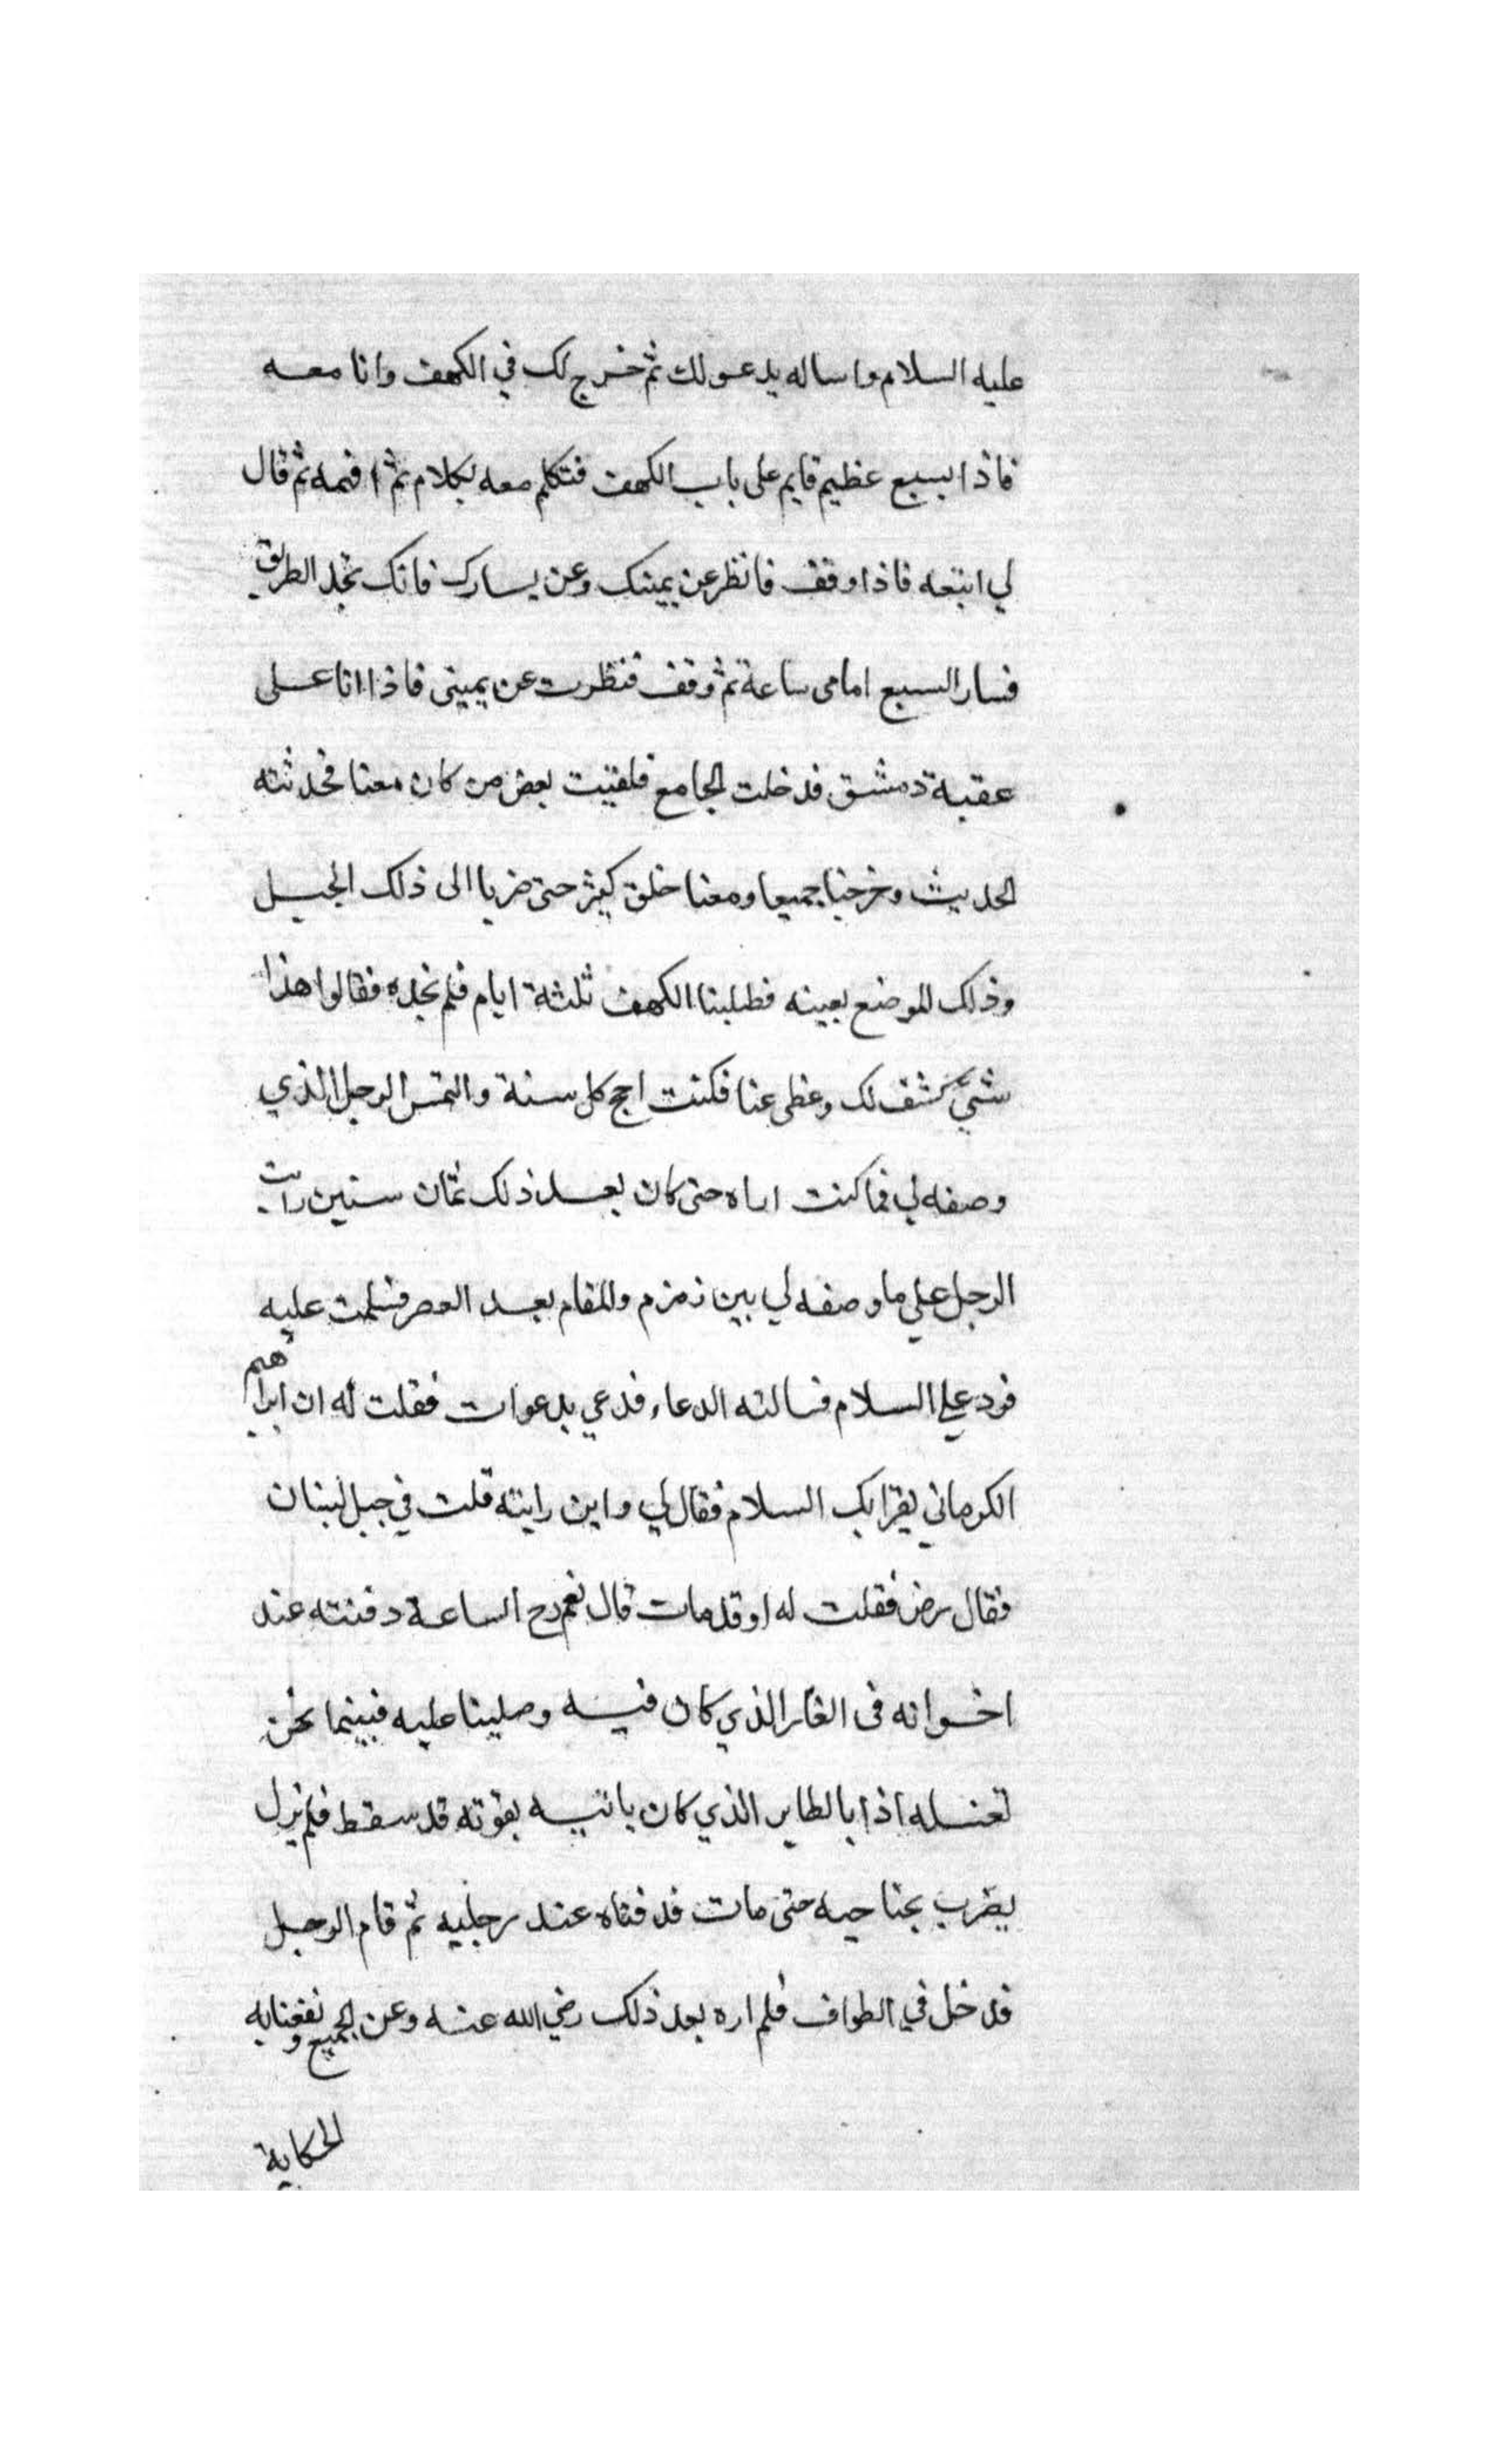 عليه السلام واساله يدعو لك ثم خرج لك في الكهف وانا معه
فاذا بسبع عظيم قايم على باب الكهف فتكلم معه بكلام ثم افهمه ثم قال
لي اتبعه فاذا وقف فانظر عن يمينك وعن يسارك فانك تجد الطريق
فسار السبع امامى ساعة ثم وقف فنظرت عن يمينى فاذا انا على
عقبة دمشق فدخلت الجامع فلقيت بعض من كان معنا فحدثته
الحديث وخرجنا جميعا ومعنا خلق كثير حتى ضربا الى ذلك الجبل
وذلك الموضع بعينه فطلبنا الكهف ثلثة ايام فلم نجده فقالوا هذا
شيء كشف لك وغطى عنا فكنت احج كل سنة والتمس الرجل الذي
وصفه لي فما كنت اراه حتى كان بعد ذلك ثمان سنين رايت
الرجل علي ما وصفه لي بين زمزم والمقام بعد العصر فسلمت عليه
فرد علي السلام فسالته الدعاء فدعي بدعوات فقلت له ان ابراهيم
الكرماني يقرا بك السلام فقال لي واين رايته قلت في جبل لبنان
فقال رض فقلت له او قد مات قال نعم رح الساعة دفنته عند
اخوانه فى الغار الذي كان فيه وصلينا عليه فبينما نحن
نغسله اذا بالطاير الذي كان ياتيه بقوته قد سقط فلم يزل
يضرب بجناحيه حتى مات فدفناه عند رجليه ثم قام الرجل
فدخل في الطواف فلم اره بعد ذلك رضي الله عنه وعن الجميع ونفعنا به
الحكاية